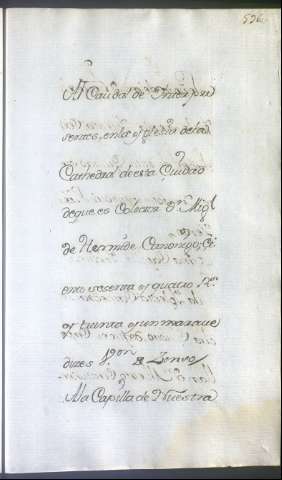 536
Al Caudal de Interpre
sentes, en la Yglesia de la
Cathedral de esta Ciudad
de que es Colector Dn. Migl
de Hermide Canonigo, Ci
ento sesenta y quatro Rs.
y treinta y un marave
dises
A la Capilla de Nuestra